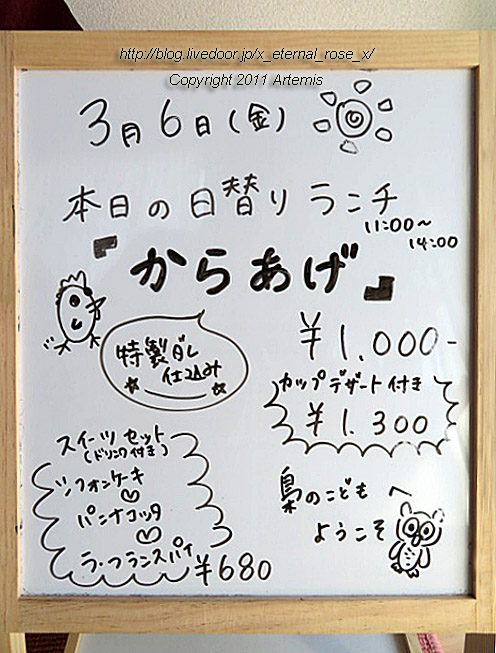 http://blog.livedoor.jp/x_eternal_rose_x/
Copyright 2011 Artemis
3月6日(金)
本日の日替りランチ
11:00~
14:00
『からあげ』
¥1,000-
特製ダレ
仕込み
カップデザート付き
¥1.300
スイーツセット
(ドリンク付き)
シフォンケーキ
パンナコッタ
ラ・フランスパイ
¥680
梟のこどもへ
ようこそ